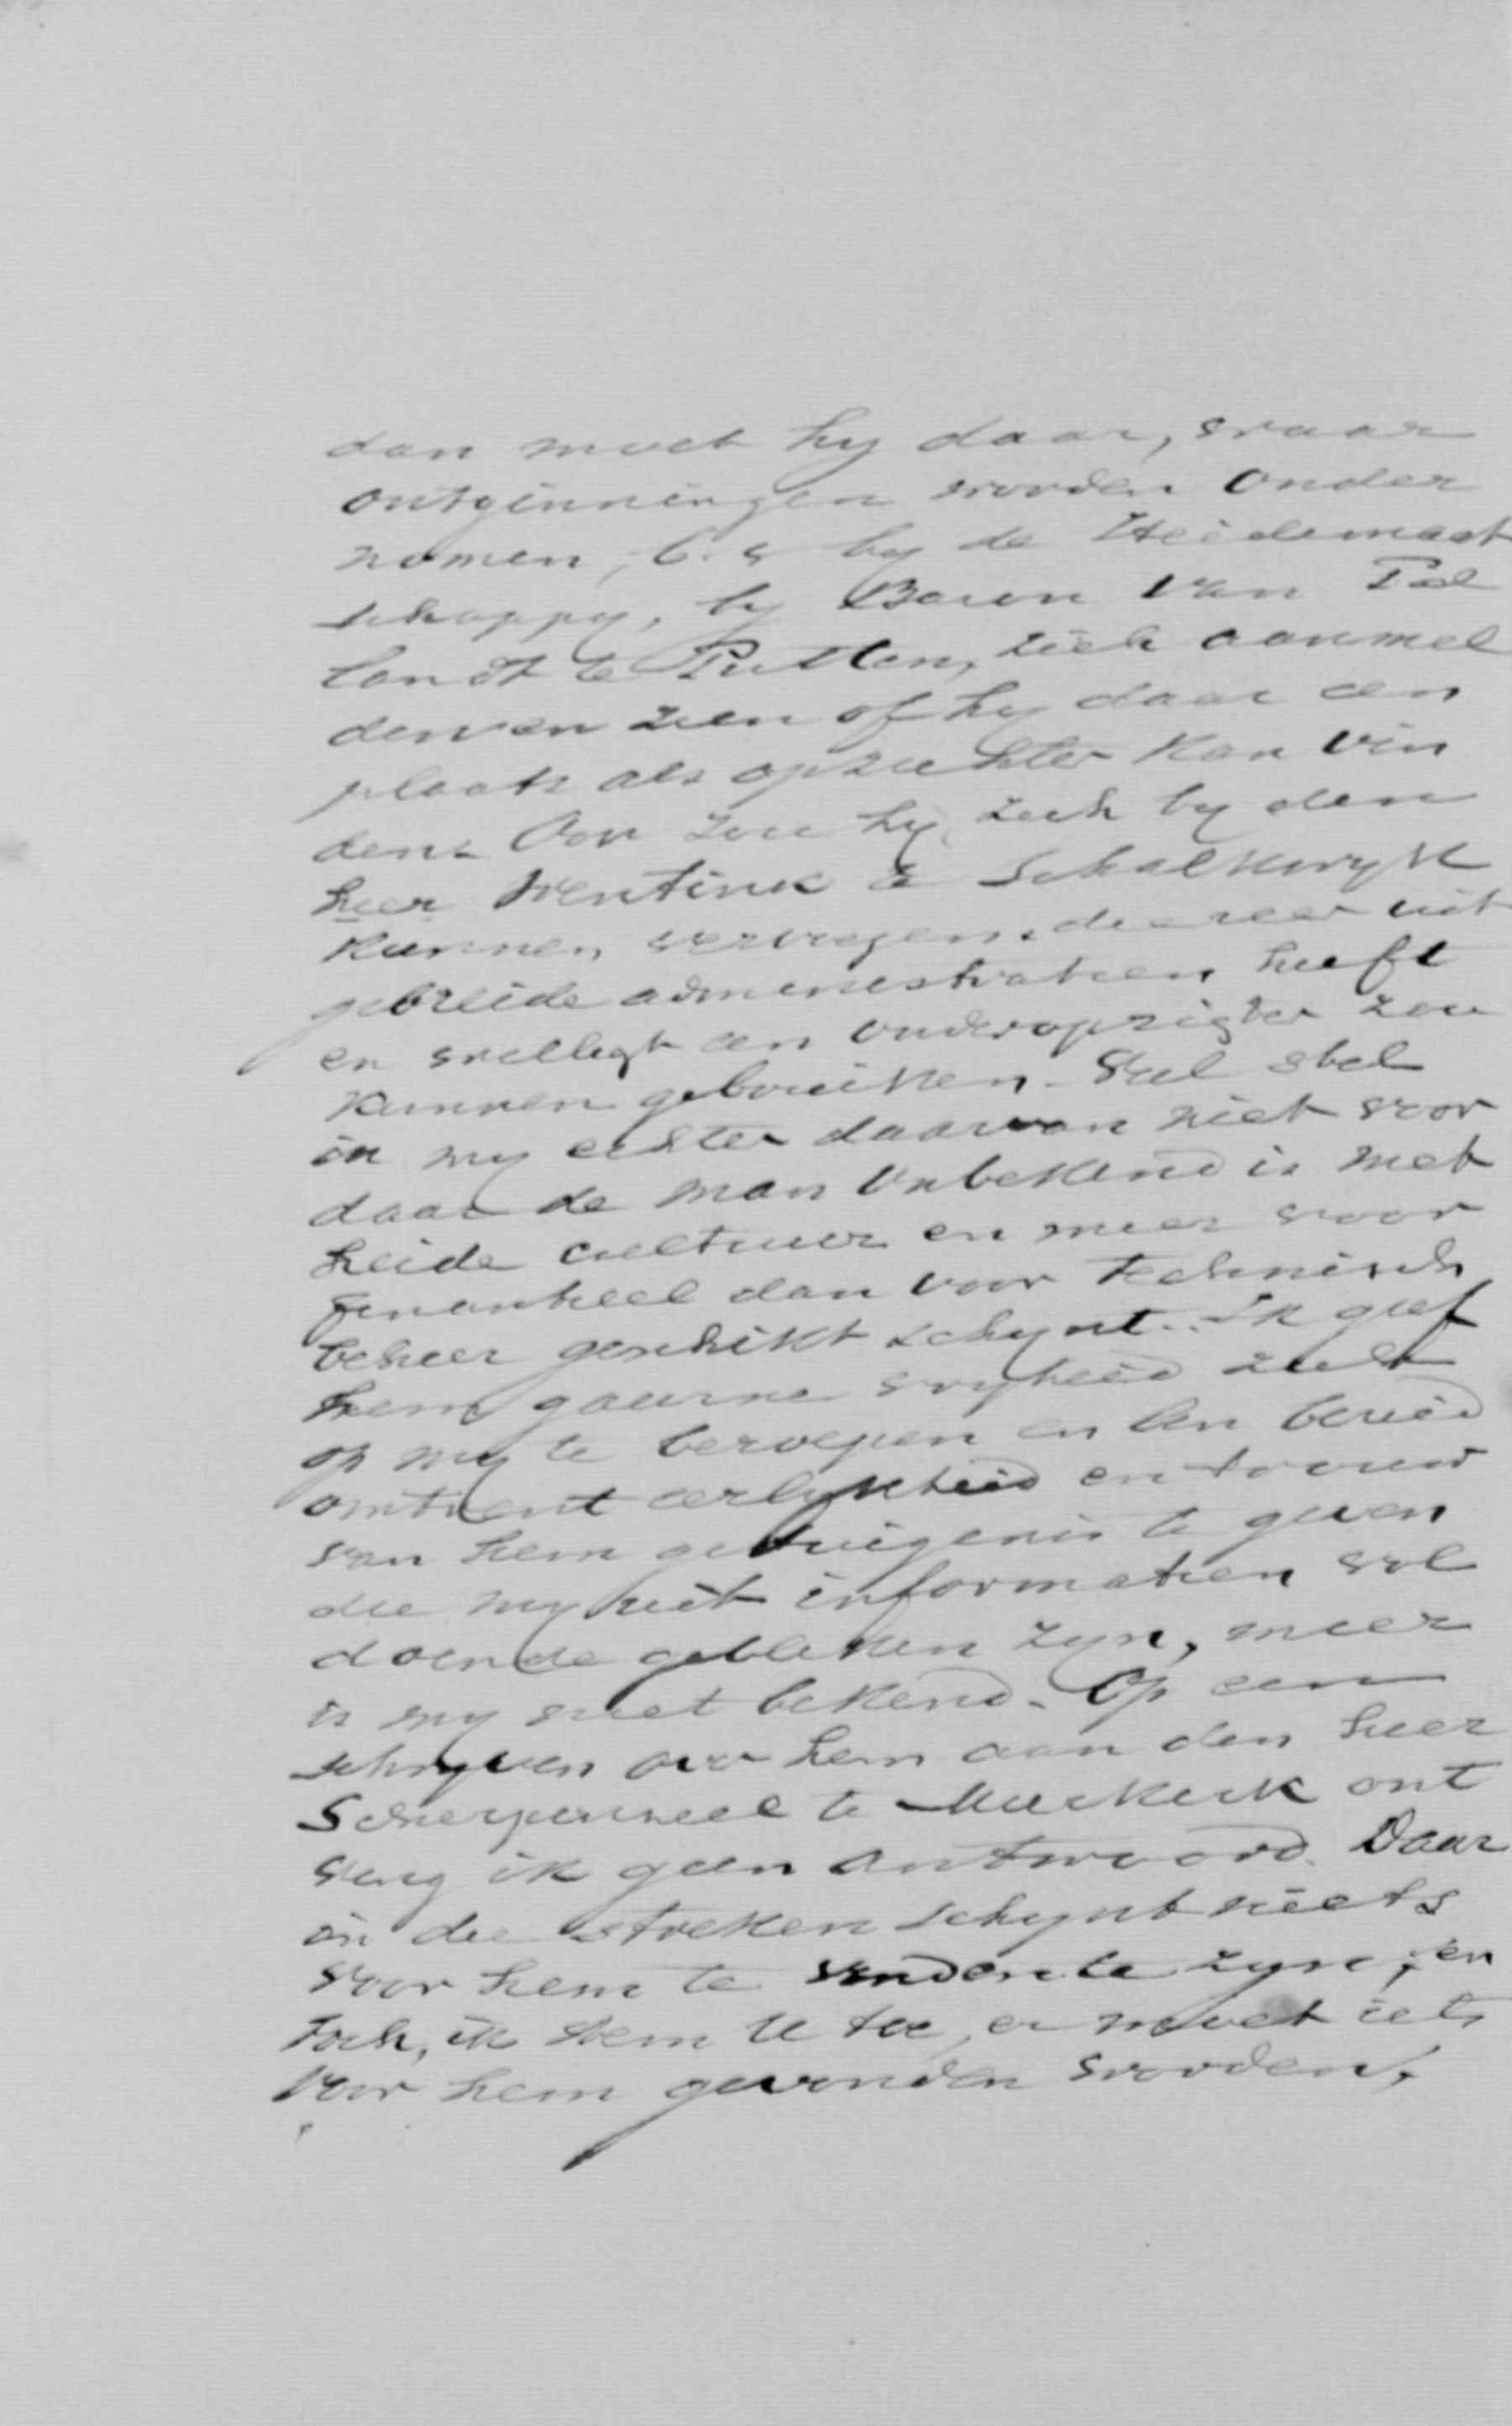 dan moet hy daar, waar
ontginningen worden onder
nomen, b.v by de Heidemaat
schappy, by Baron van Pal
landt te Putten, zich aanmel
den en zien of hy daar een
plaats als opzichter kan vin
den. Ook zou hy zich by den
heer Wentink te Schalkwyk
kunnen vervoegen, die zeer uit
gebreide administratien heeft
en wellegt een onderopzigter zou
kunnen gebruiken. Veel stel
ik my echter daarvan niet voor
daar de man onbekend is met
heide cultuur en meer voor
finantieel dan voor technisch
beheer geschikt schynt. Ik geef
hem gaarne vryheid zich
op my te beroepen en ben bereid
omtrent eerlykheid en trouw
van hem getuigenis te geven
die my uit informatien vol
doende gebleken zyn, meer
is my niet bekend. Op een
schryven over hem aan den heer
Scherpenzeel te Meerkerk ont
ving ik geen antwoord. Daar
in die streken schynt niets
voor hem te vinden te zyn, en
toch, ik stem U toe, er moet iets
voor hem gevonden worden,